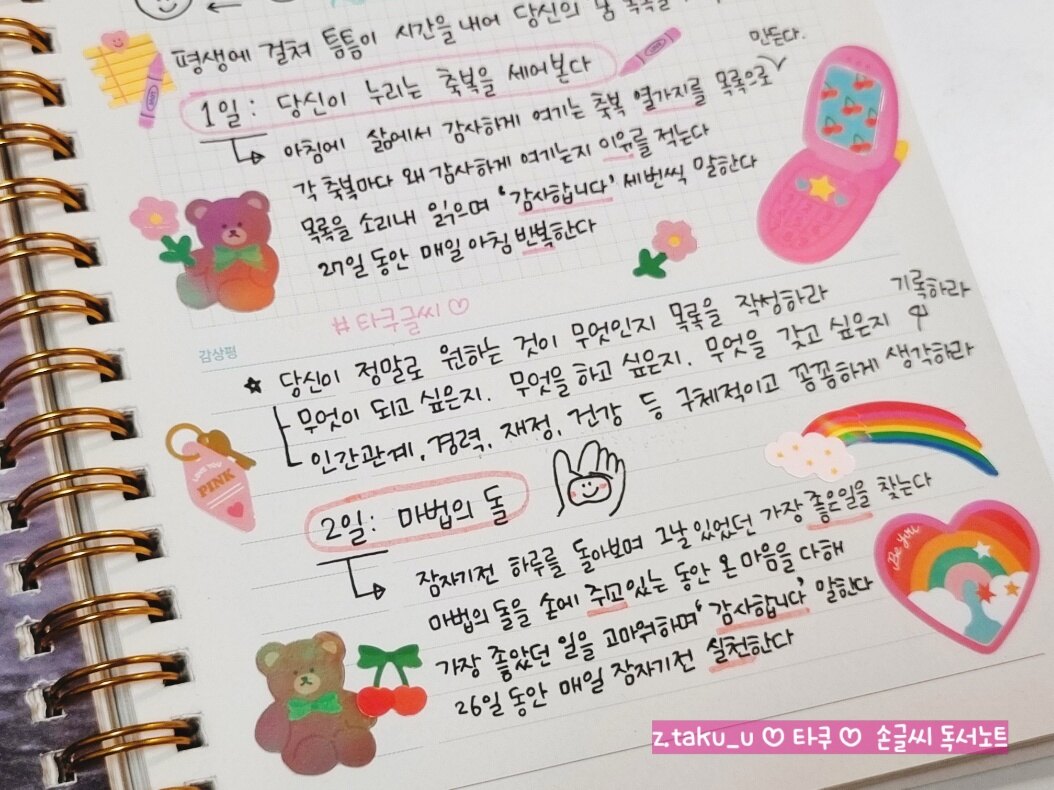 평생에 걸쳐 틈틈이 시간을 내어 당신의
1일: 당신이 누리는 축복을 세어본다
아침에 삶에서 감사하게 여기는 축복 열가지를 목록으로
만든다.
각 축복마다 왜 감사하게 여기는지 이유를 적는다
목록을 소리내 읽으며 '감사합니다' 세번씩 말한다
27일 동안 매일 아침 반복한다
#타쿠글씨♡
감상평
☆ 당신이 정말로 원하는 것이 무엇인지 목록을 작성하라
무엇이 되고 싶은지. 무엇을 하고 싶은지. 무엇을 갖고 싶은지
기록하라
인간관계, 경력, 재정, 건강 등 구체적이고 꼼꼼하게 생각하라
LOVE YOU
PINK
2일: 마법의 돌
잠자기전 하루를 돌아보며 그날 있었던 가장 좋은일을 찾는다
마법의 돌을 손에 주고있는 동안 온 마음을 다해
가장 좋았던 일을 고마워하며 '감사합니다' 말한다
26일 동안 매일 잠자기전 실천한다
Be you
z.taku_u ♡ 타쿠 ♡ 손글씨 독서노트